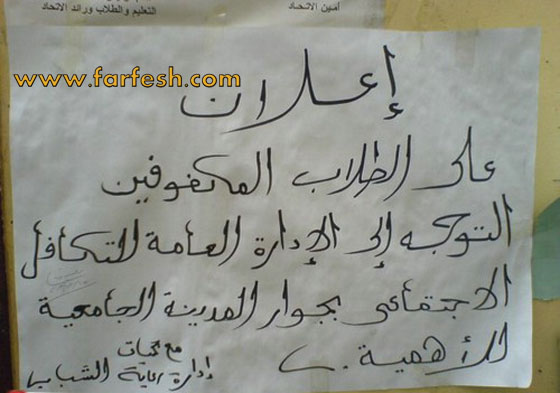 أمين الاتحاد
التعليم والطلاب ورائد الاتحاد
www.farfesh.com
إعلان
على الطلاب المكفوفين
التوجه إلى الإدارة العامة للتكافل
الاجتماعى بجوار المدينة الجامعية
للأهمية .
مع تحيات
إدارة رعاية الشباب